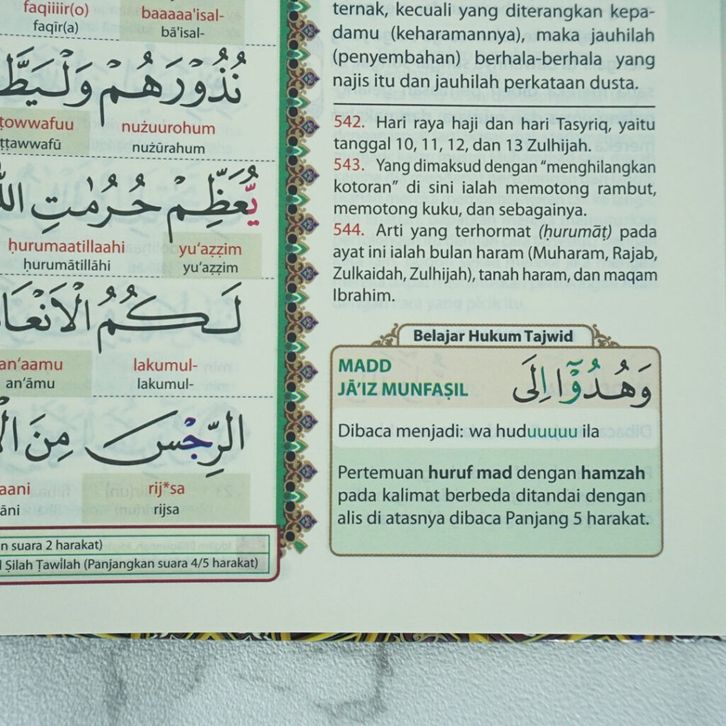 faqiiiir(o) baaaaa'isal-
faqīr(a) bā'isal-
نُذُوْرَهُمْ وَلْيَطَّ
ṭowwafuu nużuurohum
ṭṭawwafū nużūrahum
يُّعَظِّمْ حُرُمٰتِ
ḥurumaatillaahi yu'aẓẓim
ḥurumātillāhi yu'aẓẓim
لَكُمُ الْاَنْعَا
an'aamu lakumul-
an'āmu lakumul-
الرِّجْسَ مِنَ
aani rij*sa
āni rijsa
n suara 2 harakat)
Ṣilah Ṭawīlah (Panjangkan suara 4/5 harakat)
ternak, kecuali yang diterangkan kepa-
damu (keharamannya), maka jauhilah
(penyembahan) berhala-berhala yang
najis itu dan jauhilah perkataan dusta.
542. Hari raya haji dan hari Tasyriq, yaitu
tanggal 10, 11, 12, dan 13 Zulhijah.
543. Yang dimaksud dengan "menghilangkan
kotoran" di sini ialah memotong rambut,
memotong kuku, dan sebagainya.
544. Arti yang terhormat (ḥurumāṭ) pada
ayat ini ialah bulan haram (Muharam, Rajab,
Zulkaidah, Zulhijah), tanah haram, dan maqam
Ibrahim.
Belajar Hukum Tajwid
MADD
JĀ'IZ MUNFAṢIL
وَهُدُوْٓا اِلَى
Dibaca menjadi: wa huduuuuu ila
Pertemuan huruf mad dengan hamzah
pada kalimat berbeda ditandai dengan
alis di atasnya dibaca Panjang 5 harakat.